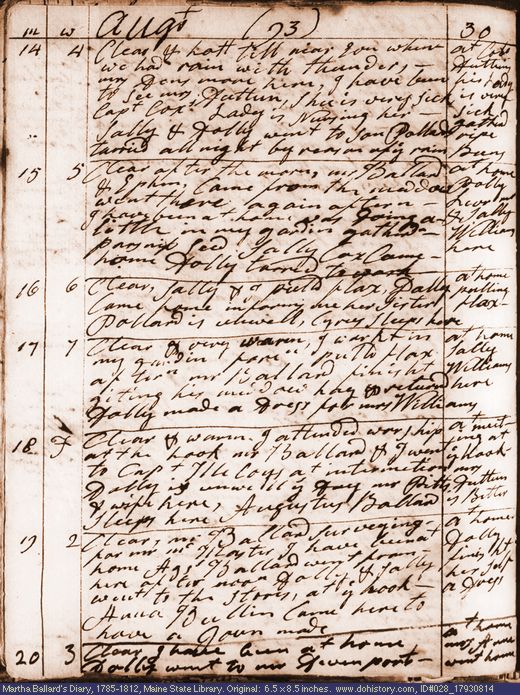 m w Augt (23) 30
14 4 Clear & hott till near Sun when
we had rain with thunder,
mrs Densmore here, I have been
to See mrs Dutton, She is very Sick
Capt Cox's Lady is Nursing her.
Sally & Dolly went to Son Pollards
tarried all night by reason of ye rain
at Cols
Duttuns
his Lady
is very
Sick
15 5 Clear after the morn, mr Ballard
& Ephm Came from the meadow
went there again aftern
I have been at home was doing a
little in my gardin gathered
Parsnip Seed Sally Cox Came
home Dolly tarried to work
at home
Dolly
& Sally
Williams
here
16 6 Clear, Sally & I pulld flax, Dolly
Came home informs me her Sister
Pollard is unwell, Cyrus Sleeps here
at home
pulling
flax
17 7 Clear & very warm, I workt in
my gardin forn pulld flax
aftern mr Ballard finisht
giting his medow hay & returnd
Dolly made a Dress for mrs Williams
at home
Sally
Williams
here
18 Clear & warm. I attended worship
at the hook mr Ballard & I went
to Capt at intermition
Dolly is unwell ys Day mr Pitts
& wife here, Augustus Ballard
Sleeps here
at meet-
ing at
ye hook
mrs
Duttun
is Better
19 2 Clear, mr Ballard Surveying
for mr I have been at
home Ags Ballard went from
here after noon Dolly & Sally
went to the Stores, at ye hook
Anna Bullin Came here to
have a Gown made
at home
Dolly
her
a Dress
20 3 Clear, I have been at home
Dolly went to mr
at home
mrs
went home
Martha Ballard's Diary, 1785-1812, Maine State Library. Original: 6.5 x 8.5 inches. www.dohistory.com, IDM028_17930814